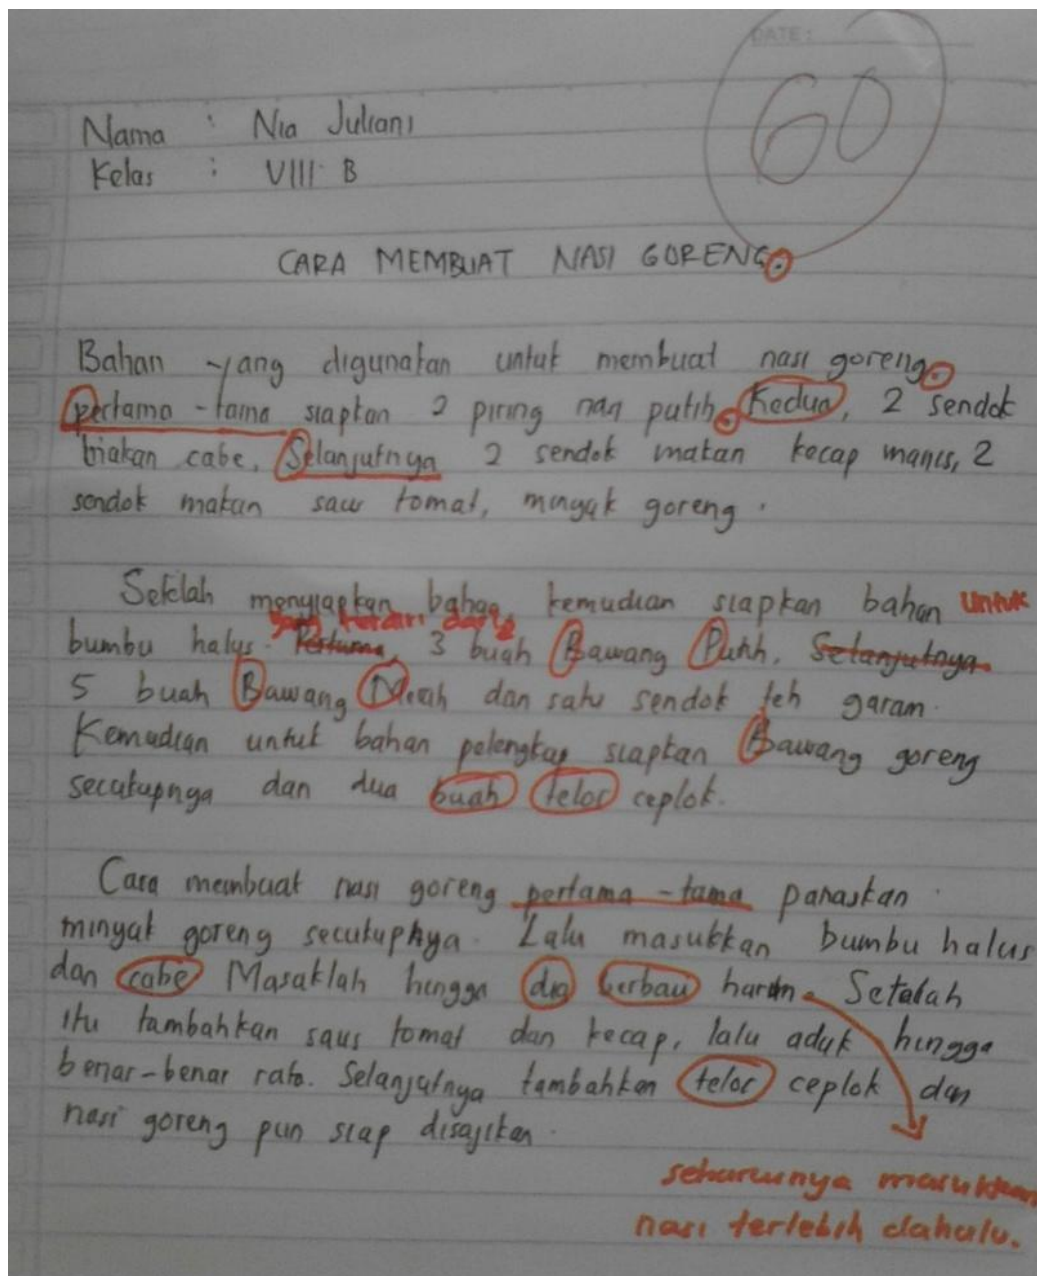 DATE:
60
Nama : Nia Juliani
Kelas : VIII B
CARA MEMBUAT NASI GORENG.
Bahan yang digunakan untuk membuat nasi goreng.
pertama-tama siapkan 2 piring nasi putih. Kedua, 2 sendok
makan cabe. Selanjutnya 2 sendok makan kecap manis, 2
sendok makan saus tomat, minyak goreng.
Setelah menyiapkan bahan, kemudian siapkan bahan untuk
yang terdiri dari:
bumbu halus. Pertama, 3 buah Bawang Putih. Selanjutnya
5 buah Bawang Merah dan satu sendok teh garam.
Kemudian untuk bahan pelengkap siapkan Bawang goreng
secukupnya dan dua buah telor ceplok.
Cara membuat nasi goreng pertama-tama panaskan
minyak goreng secukuphya. Lalu masukkan bumbu halus
dan cabe Masaklah hingga dia berbau harum. Setelah
itu tambahkan saus tomat dan kecap, lalu aduk hingga
benar-benar rata. Selanjutnya tambahkan telor ceplok dan
nasi goreng pun siap disajikan.
seharusnya masukkan
nasi terlebih dahulu.